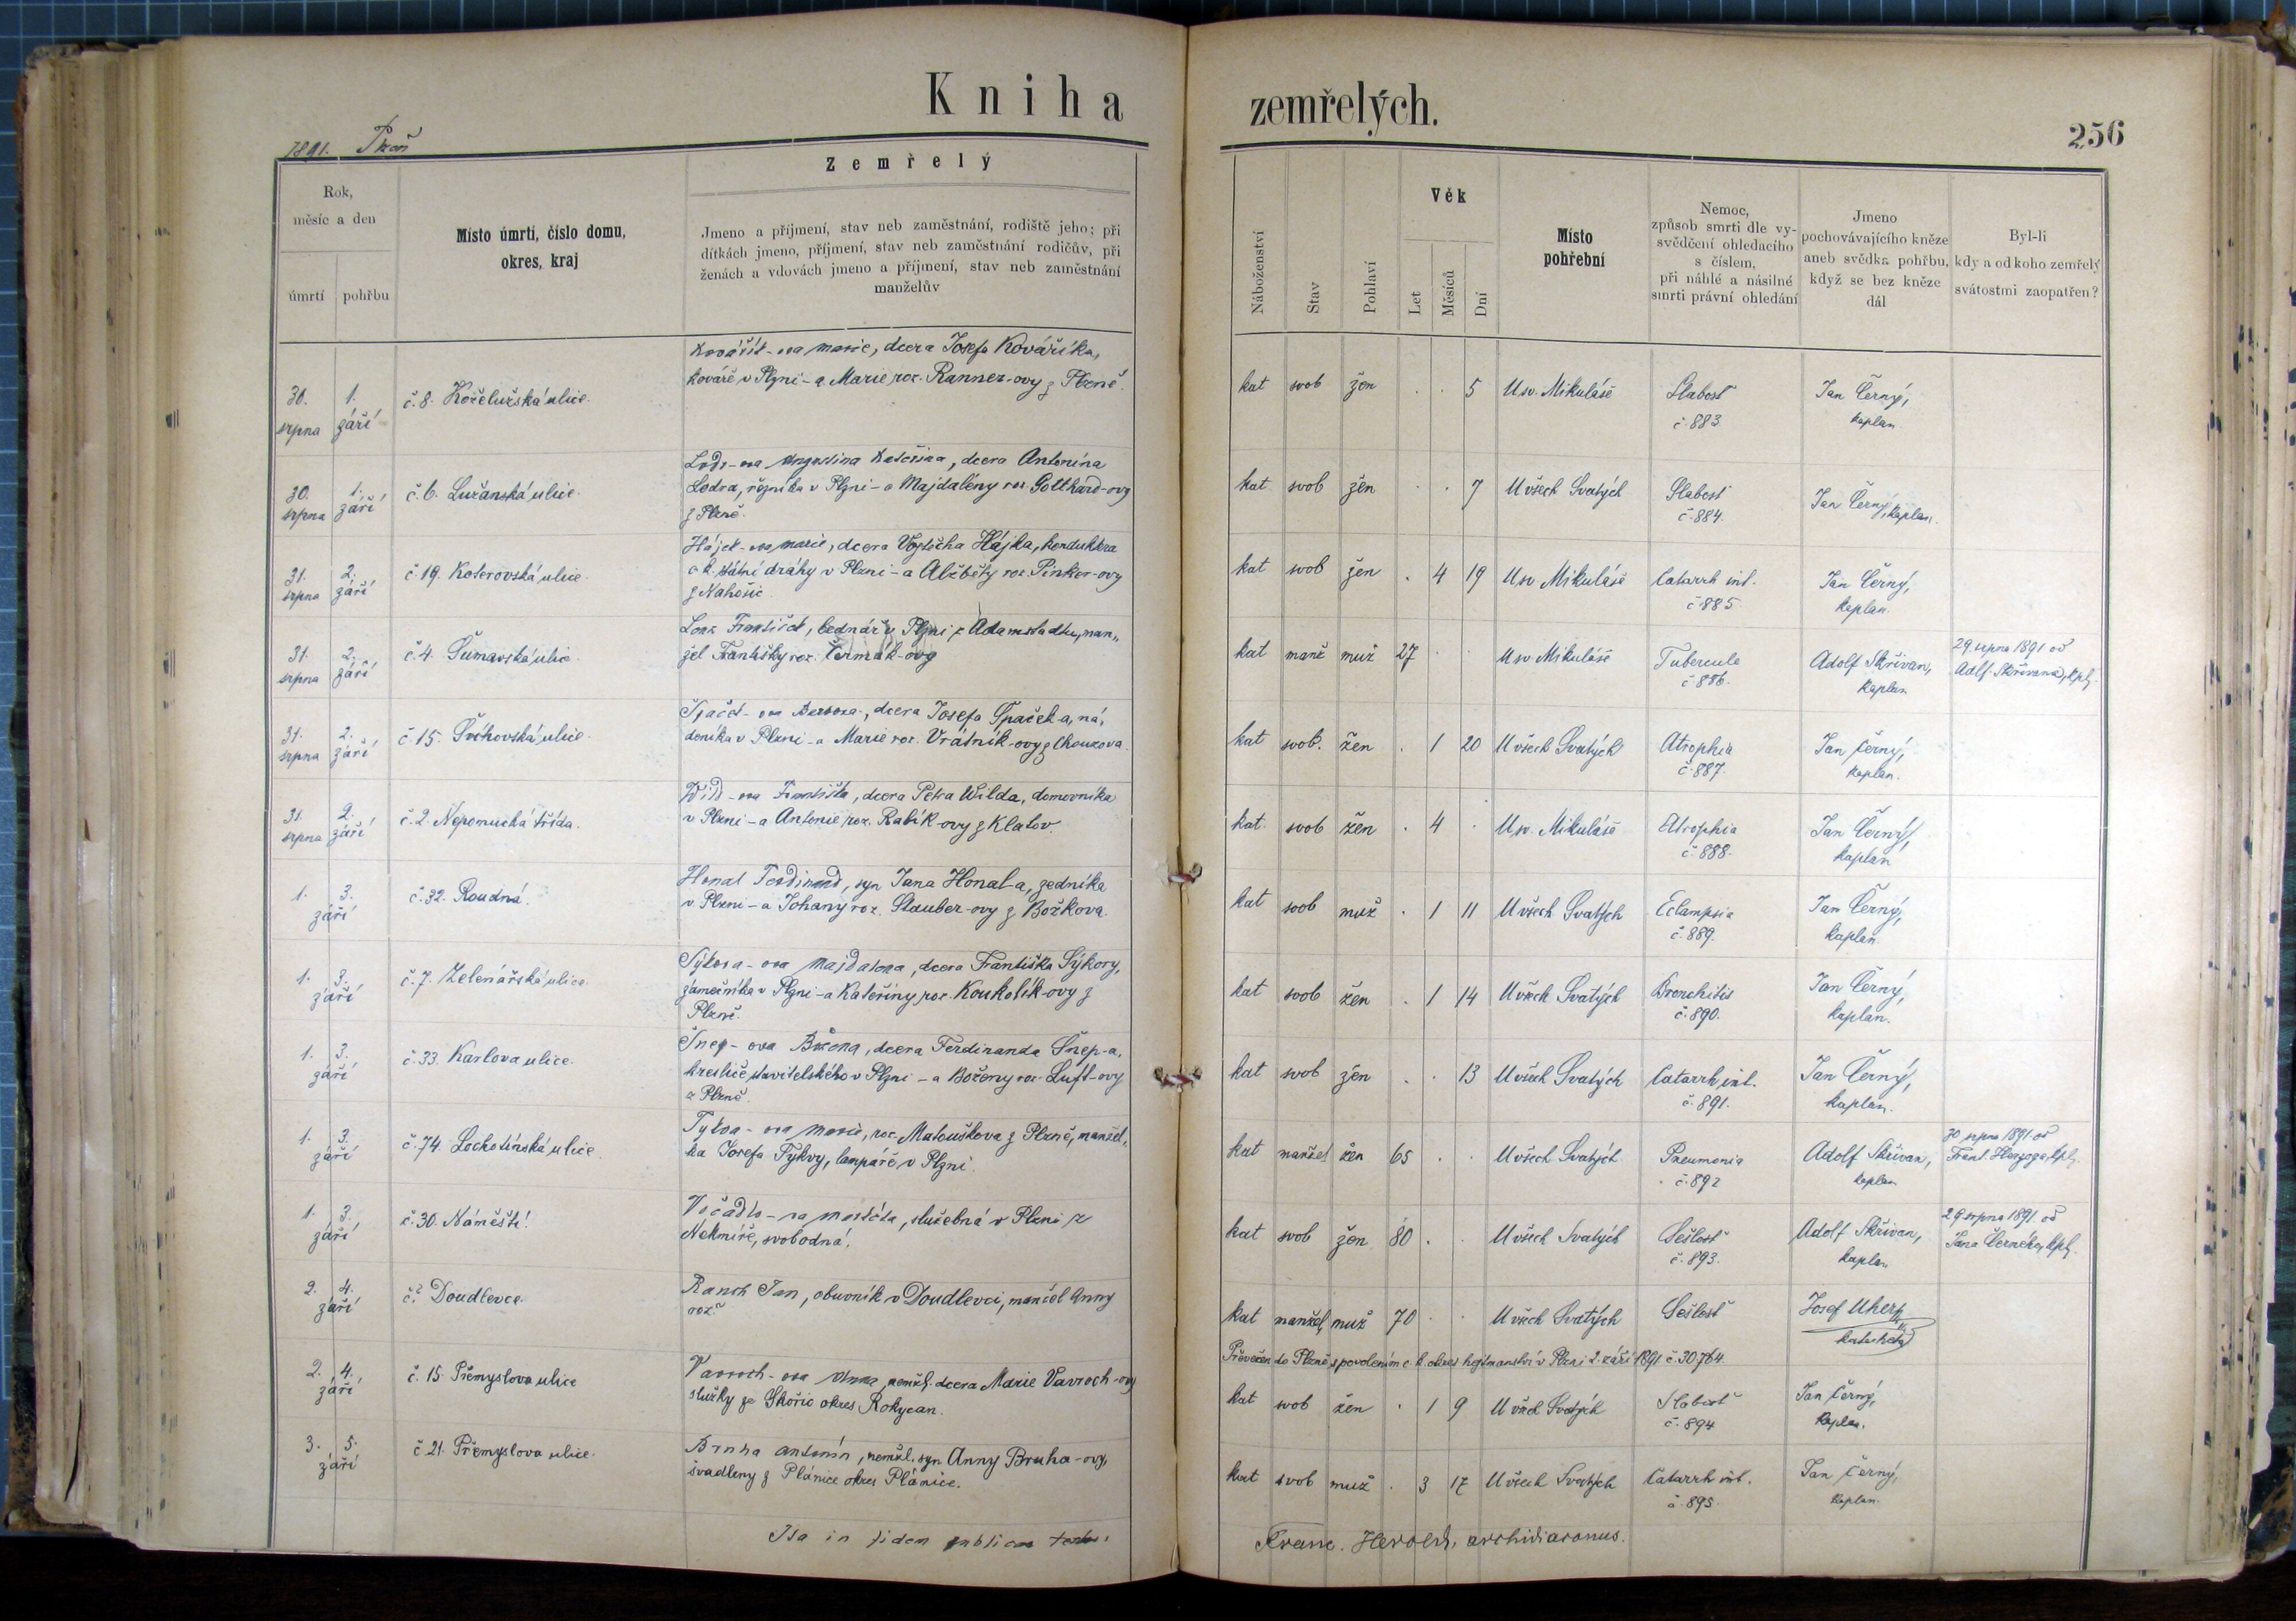 Kniha zemřelých.
256
1891. Plzeň
Rok,
měsíc a den
úmrtí
pohřbu
Místo úmrtí, číslo domu,
okres, kraj
Zemřelý
Jmeno a příjmení, stav neb zaměstnání, rodiště jeho; při
dítkách jmeno, příjmení, stav neb zaměstnání rodičův, při
ženách a vdovách jmeno a příjmení, stav neb zaměstnání
manželův
Náboženství
Stav
Pohlaví
Věk
Let
Měsíců
Dní
Místo
pohřební
Nemoc,
způsob smrti dle vy-
svědčení ohledacího
s číslem,
při náhlé a násilné
smrti právní ohledání
Jmeno
pochovávajícího kněze
aneb svědka pohřbu,
když se bez kněze
dál
Byl-li
kdy a od koho zemřelý
svátostmi zaopatřen?
30. srpna
1. září
č. 8. Koželužská ulice.
Kovářík-ova Marie, dcera Josefa Kováříka,
kováře v Plzni - a Marie roz. Ranner-ovy z Plzně.
kat svob žen . . 5 U sv. Mikuláše
Slabosť
č. 883
Jan Černý,
kaplan
30. srpna
1. září
č. 6. Lužanská ulice.
Lodr-ova Augustina Kateřina, dcera Antonína
Lodra, řezníka v Plzni - a Majdalény roz. Gotthard-ovy
z Plzně.
kat. svob žen . . 7 U všech Svatých
Slabosť
č. 884.
Jan Černý, kaplan.
31. srpna
2. září
č. 19. Koterovská ulice.
Hájek-ova Marie, dcera Vojtěcha Hájka, konduktora
c. k. státní dráhy v Plzni - a Alžběty roz. Pinker-ovy
z Nahošic
kat svob žen . 4 19 U sv. Mikuláše
Catarrh int.
č. 885.
Jan Černý,
kaplan.
31. srpna
2. září
č. 4. Šumavská ulice.
František, bednář v Plzni z Adamstadtu, man„
žel Františky roz. Čermák-ovy
kat manž muž 27 . . U sv. Mikuláše
Tubercule
č. 886.
Adolf Skřivan,
kaplan
29. srpna 1891 od
Adolf. Skřivana, kpl.
31. srpna
2. září
č. 15. Švihovská ulice.
Špaček-ova Barbora, dcera Josefa Špaček-a, ná„
deníka v Plzni - a Marie roz. Vrátník-ovy z Chouzova.
kat svob. žen . 1 20 U všech Svatých
Atrophia
č. 887.
Jan Černý,
kaplan.
31. srpna
2. září
č. 2. Nepomucká třída.
Wild-ova Františka, dcera Petra Wilda, domovníka
v Plzni - a Antonie roz. Rabík-ovy z Klatov.
kat. svob žen . 4 . U sv. Mikuláše
Atrophia
č. 888.
Jan Černý,
kaplan
1. 3.
září
č. 32. Roudná.
Honal Ferdinand, syn Jana Honal-a, zedníka
v Plzni - a Johany roz. Stauber-ovy z Božkova.
kat svob muž . 1 11 U všech Svatých
Eclampsia
č. 889.
Jan Černý,
kaplan.
1. 3.
září
č. 7. Zelenářská ulice.
Sýkora-ova Majdalena, dcera Františka Sýkory,
zámečníka v Plzni - a Kateřiny roz. Koukolík-ovy z
Plzně.
kat svob žen . 1 14 U všech Svatých
Bronchitis
č. 890.
Jan Černý,
kaplan.
1. 3.
září
č. 33. Karlova ulice.
Šnep-ova Božena, dcera Ferdinanda Šnep-a,
kresliče stavitelského v Plzni - a Boženy roz. Luft-ovy
z Plzně.
kat svob žen . . 13 U všech Svatých
Catarrh int.
č. 891.
Jan Černý,
kaplan.
1. 3.
září
č. 74. Lochotínská ulice.
Tykva-ova Marie, roz. Matouškova z Plzně, manžel„
ka Josefa Tykvy, lampáře v Plzni.
kat manžel žen 65 . . U všech Svatých
Pneumonia
č. 892
Adolf Skřivan,
kaplan
30 srpna 1891 od
Frant. Herzoga, kpl.
1. 3.
září
č. 30. Náměstí.
Vočadlo-va Markéta, služebná v Plzni z
Nekmíře, svobodná.
kat svob žen 80 . . U všech Svatých
Sešlosť
č. 893.
Adolf Skřivan,
kaplan
29 srpna 1891 od
Jana Černého, kpl.
2. 4.
září
č. Doudlevce.
Jan, obuvník v Doudlevci, manžel Anny
roz.
kat manžel muž 70 . . U všech Svatých
Sešlosť
Josef Uherr,
katecheta
Převezen do Plzně s povolením c. k. okres. hejtmanství v Plzni 2. září 1891 č. 30764.
2. 4.
září
č. 15. Přemyslova ulice
Vavroch-ova Anna, nemžl. dcera Marie Vavroch-ovy
služky ze Skořic okres Rokycan.
kat svob žen . 1 9 U všech Svatých
Slabosť
č. 894
Jan Černý,
kaplan.
3. 5.
září
č. 21. Přemyslova ulice.
Bruha Antonín, nemžl. syn Anny Bruha-ovy,
švadleny z Plánice okres Plánice.
kat svob muž . 3 17 U všech Svatých
Catarrh int.
č. 895.
Jan Černý,
kaplan.
Ita in fidem publicam testor:
Franc. Herold, archidiaconus.